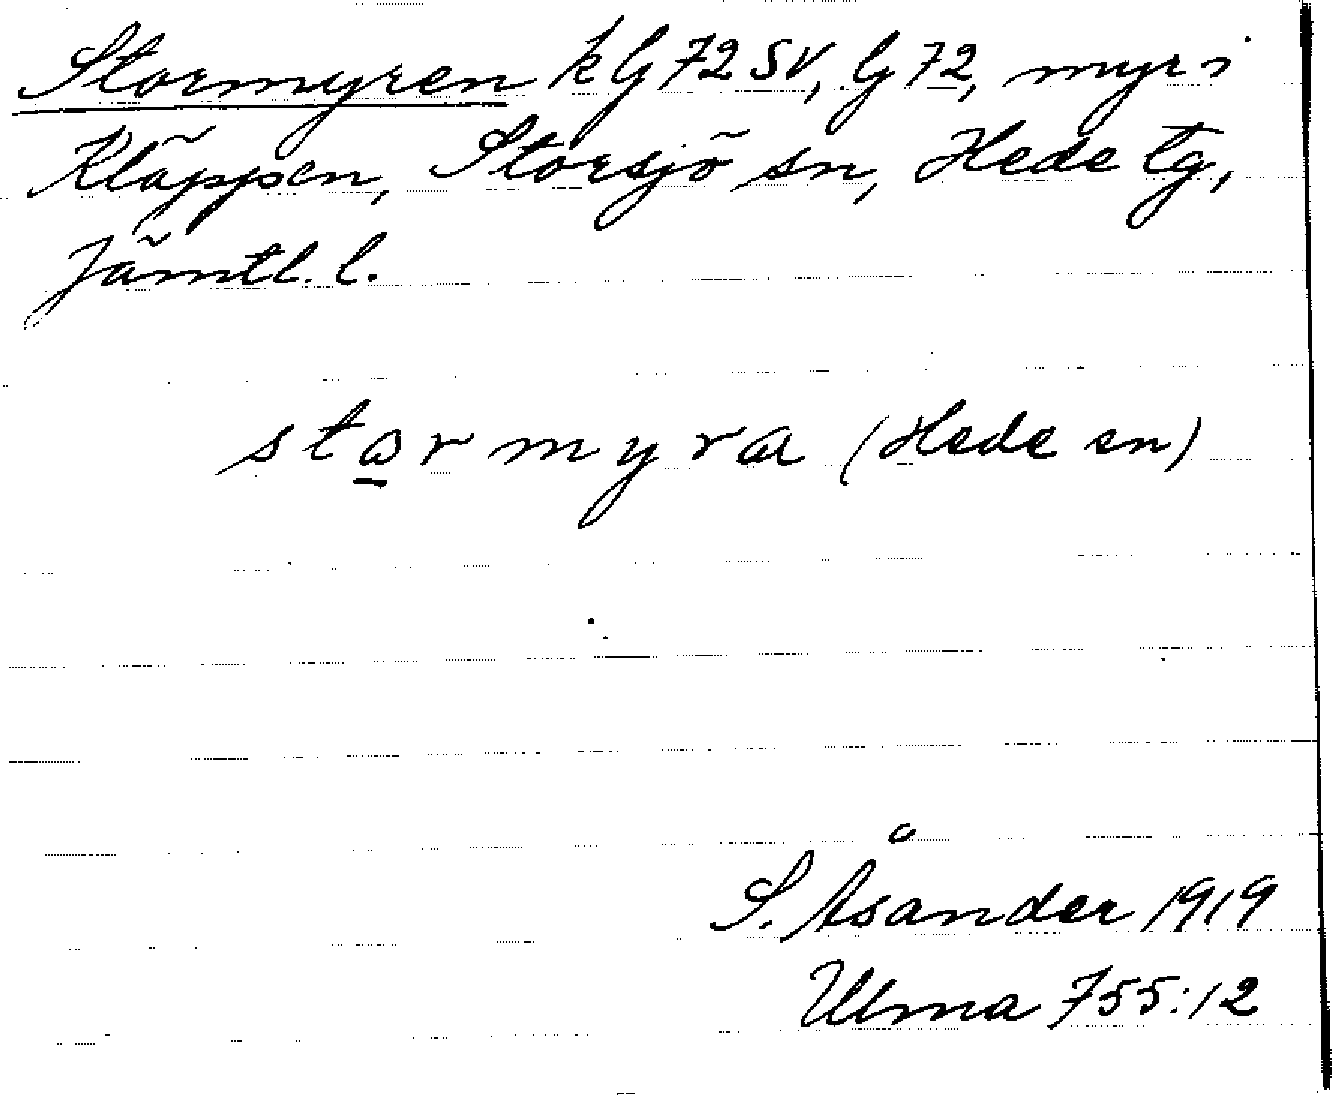 Stormyren k G 72 SV, G 72, myr i
Kläppen, Storsjö sn, Hede tg,
Jämtl. l.
stωrmyra (Hede sn)
S. Åsander 1919
Ulma 755:12